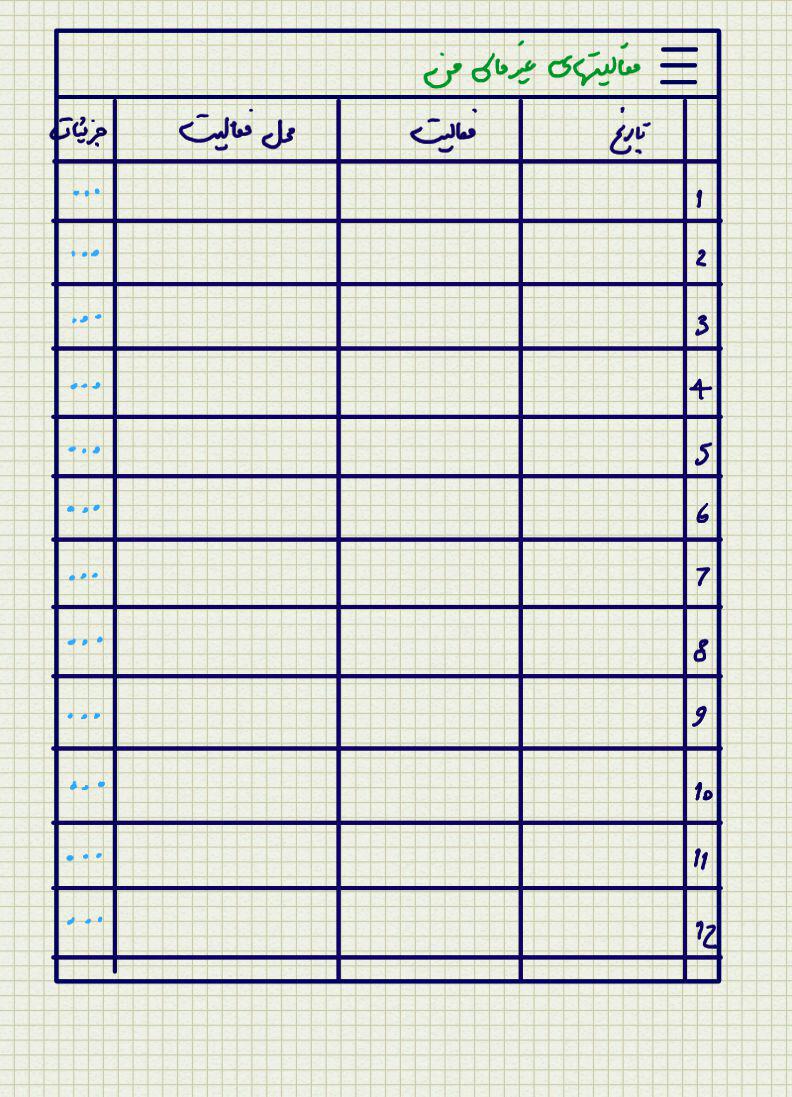 فعالیتهای غیرمالی من
تاریخ فعالیت محل فعالیت جزئیات
1 ...
2 ...
3 ...
4 ...
5 ...
6 ...
7 ...
8 ...
9 ...
10 ...
11 ...
12 ...